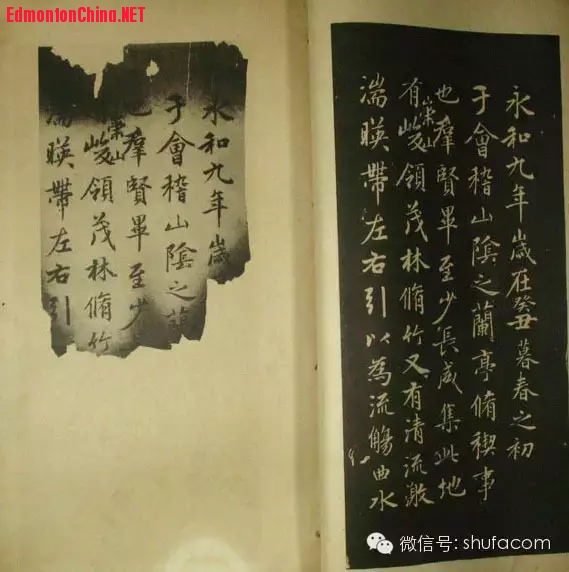 EdmontonChina.NET
永和九年歲在癸丑暮春之初
于會稽山陰之蘭亭脩禊事
也羣賢畢至少長咸集此地
有崇山峻領茂林脩竹又有清流激
湍暎帶左右引以為流觴曲水
永和九年歲
于會稽山陰之蘭
也羣賢畢至少
崇山峻領茂林脩竹
湍暎帶左右引
微信号: shufacom